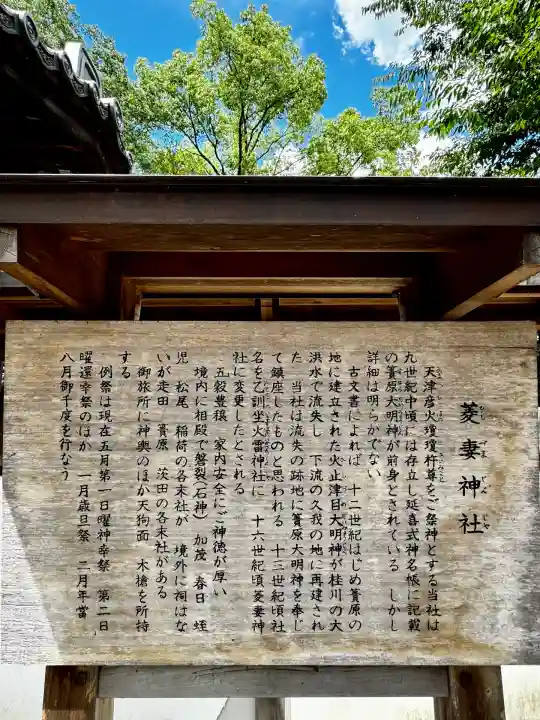 菱妻神社
ひしづまじんじゃ
天津彦火瓊瓊杵尊をご祭神とする当社は
九世紀中頃には存立し延喜式神名帳に記載
の簀原大明神が前身とされている しかし
詳細は明らかでない
古文書によれば 十二世紀はじめ簀原の
地に建立された火止津目大明神が桂川の大
洪水で流失し 下流の久我の地に再建され
た 当社は流失の跡地に簀原大明神を奉じ
て鎮座したものと思われる 十三世紀頃社
名を乙訓坐火雷神社に 十六世紀頃菱妻神
社に変更したとされる
五穀豊穣 家内安全にご神徳が厚い
境内に相段で磐裂(石神) 加茂 春日 蛭
児 松尾 稲荷の各末社が 境外に祠はな
いが走田 簀原 茨田の各末社がある
御旅所に神輿のほか天狗面 木槍を所持
する
例祭は現在五月第一日曜神幸祭 第二日
曜還幸祭のほか 一月歳旦祭 二月年當
八月御千度を行なう